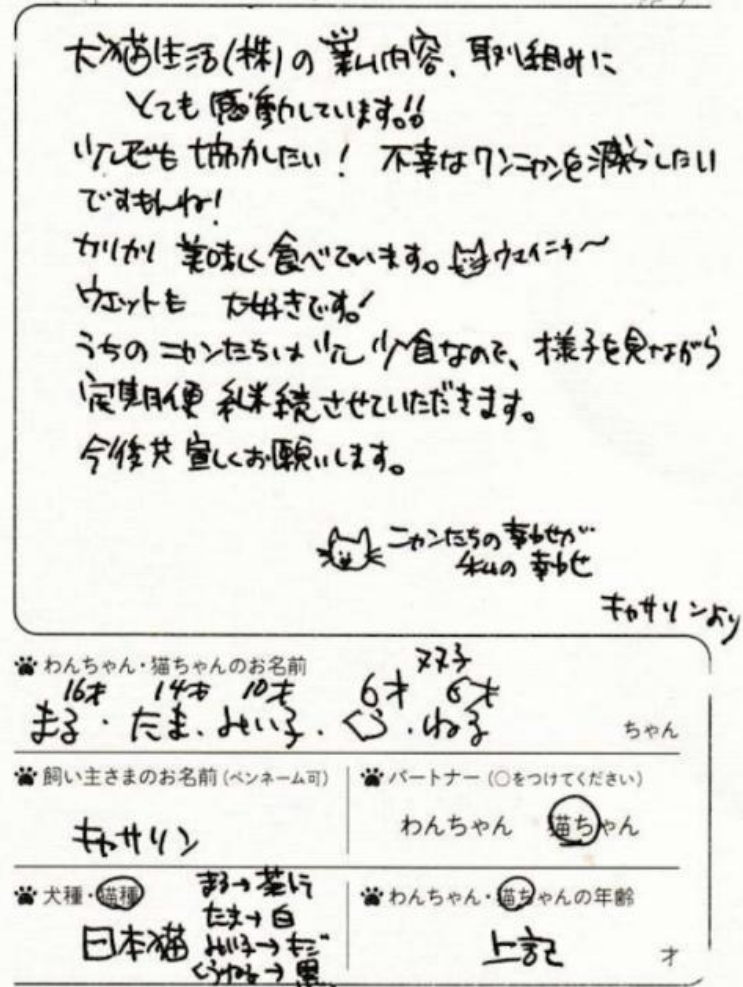 犬猫生活(株)の業ム内容、取り組みに
とても感動しています!!
少しでも協力したい! 不幸なワンニャンを減らしたい
ですもんね!
カリカリ 美味しく食べています。ウェイニャ〜
ウェットも 大好きです!
うちのニャンたちは少し少食なので、様子を見ながら
定期便 継続させていただきます。
今後共 宜しくお願いします。
ニャンたちの幸せが
私の幸せ
キャサリンより
わんちゃん・猫ちゃんのお名前
双子
16才 14才 10才 6才 6才
まる・たま・みい子・くう・ねる
ちゃん
飼い主さまのお名前(ペンネーム可)
キャサリン
パートナー(○をつけてください)
わんちゃん 猫ちゃん
犬種・猫種
日本猫
まる→茶トラ
たま→白
みい子→キジ
くうねる→黒
わんちゃん・猫ちゃんの年齢
上記 才